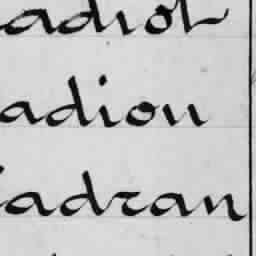 adiot
adion
adran